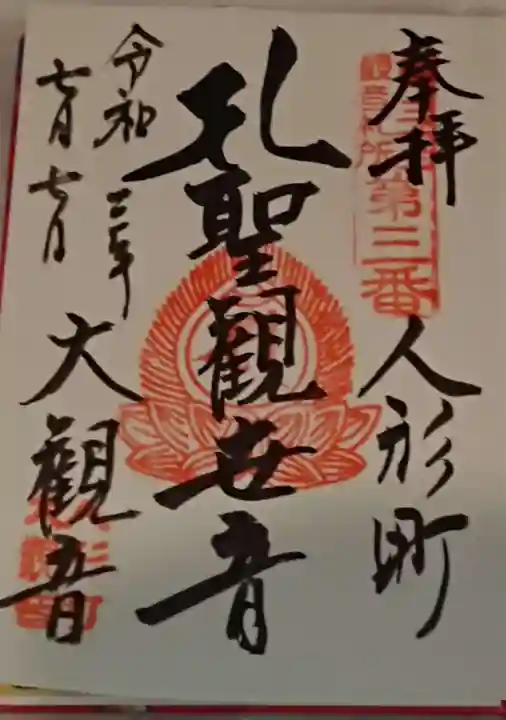 奉拝
観音札所第三番
人形町
孔聖観世音
令和三年
七月七日
大観音